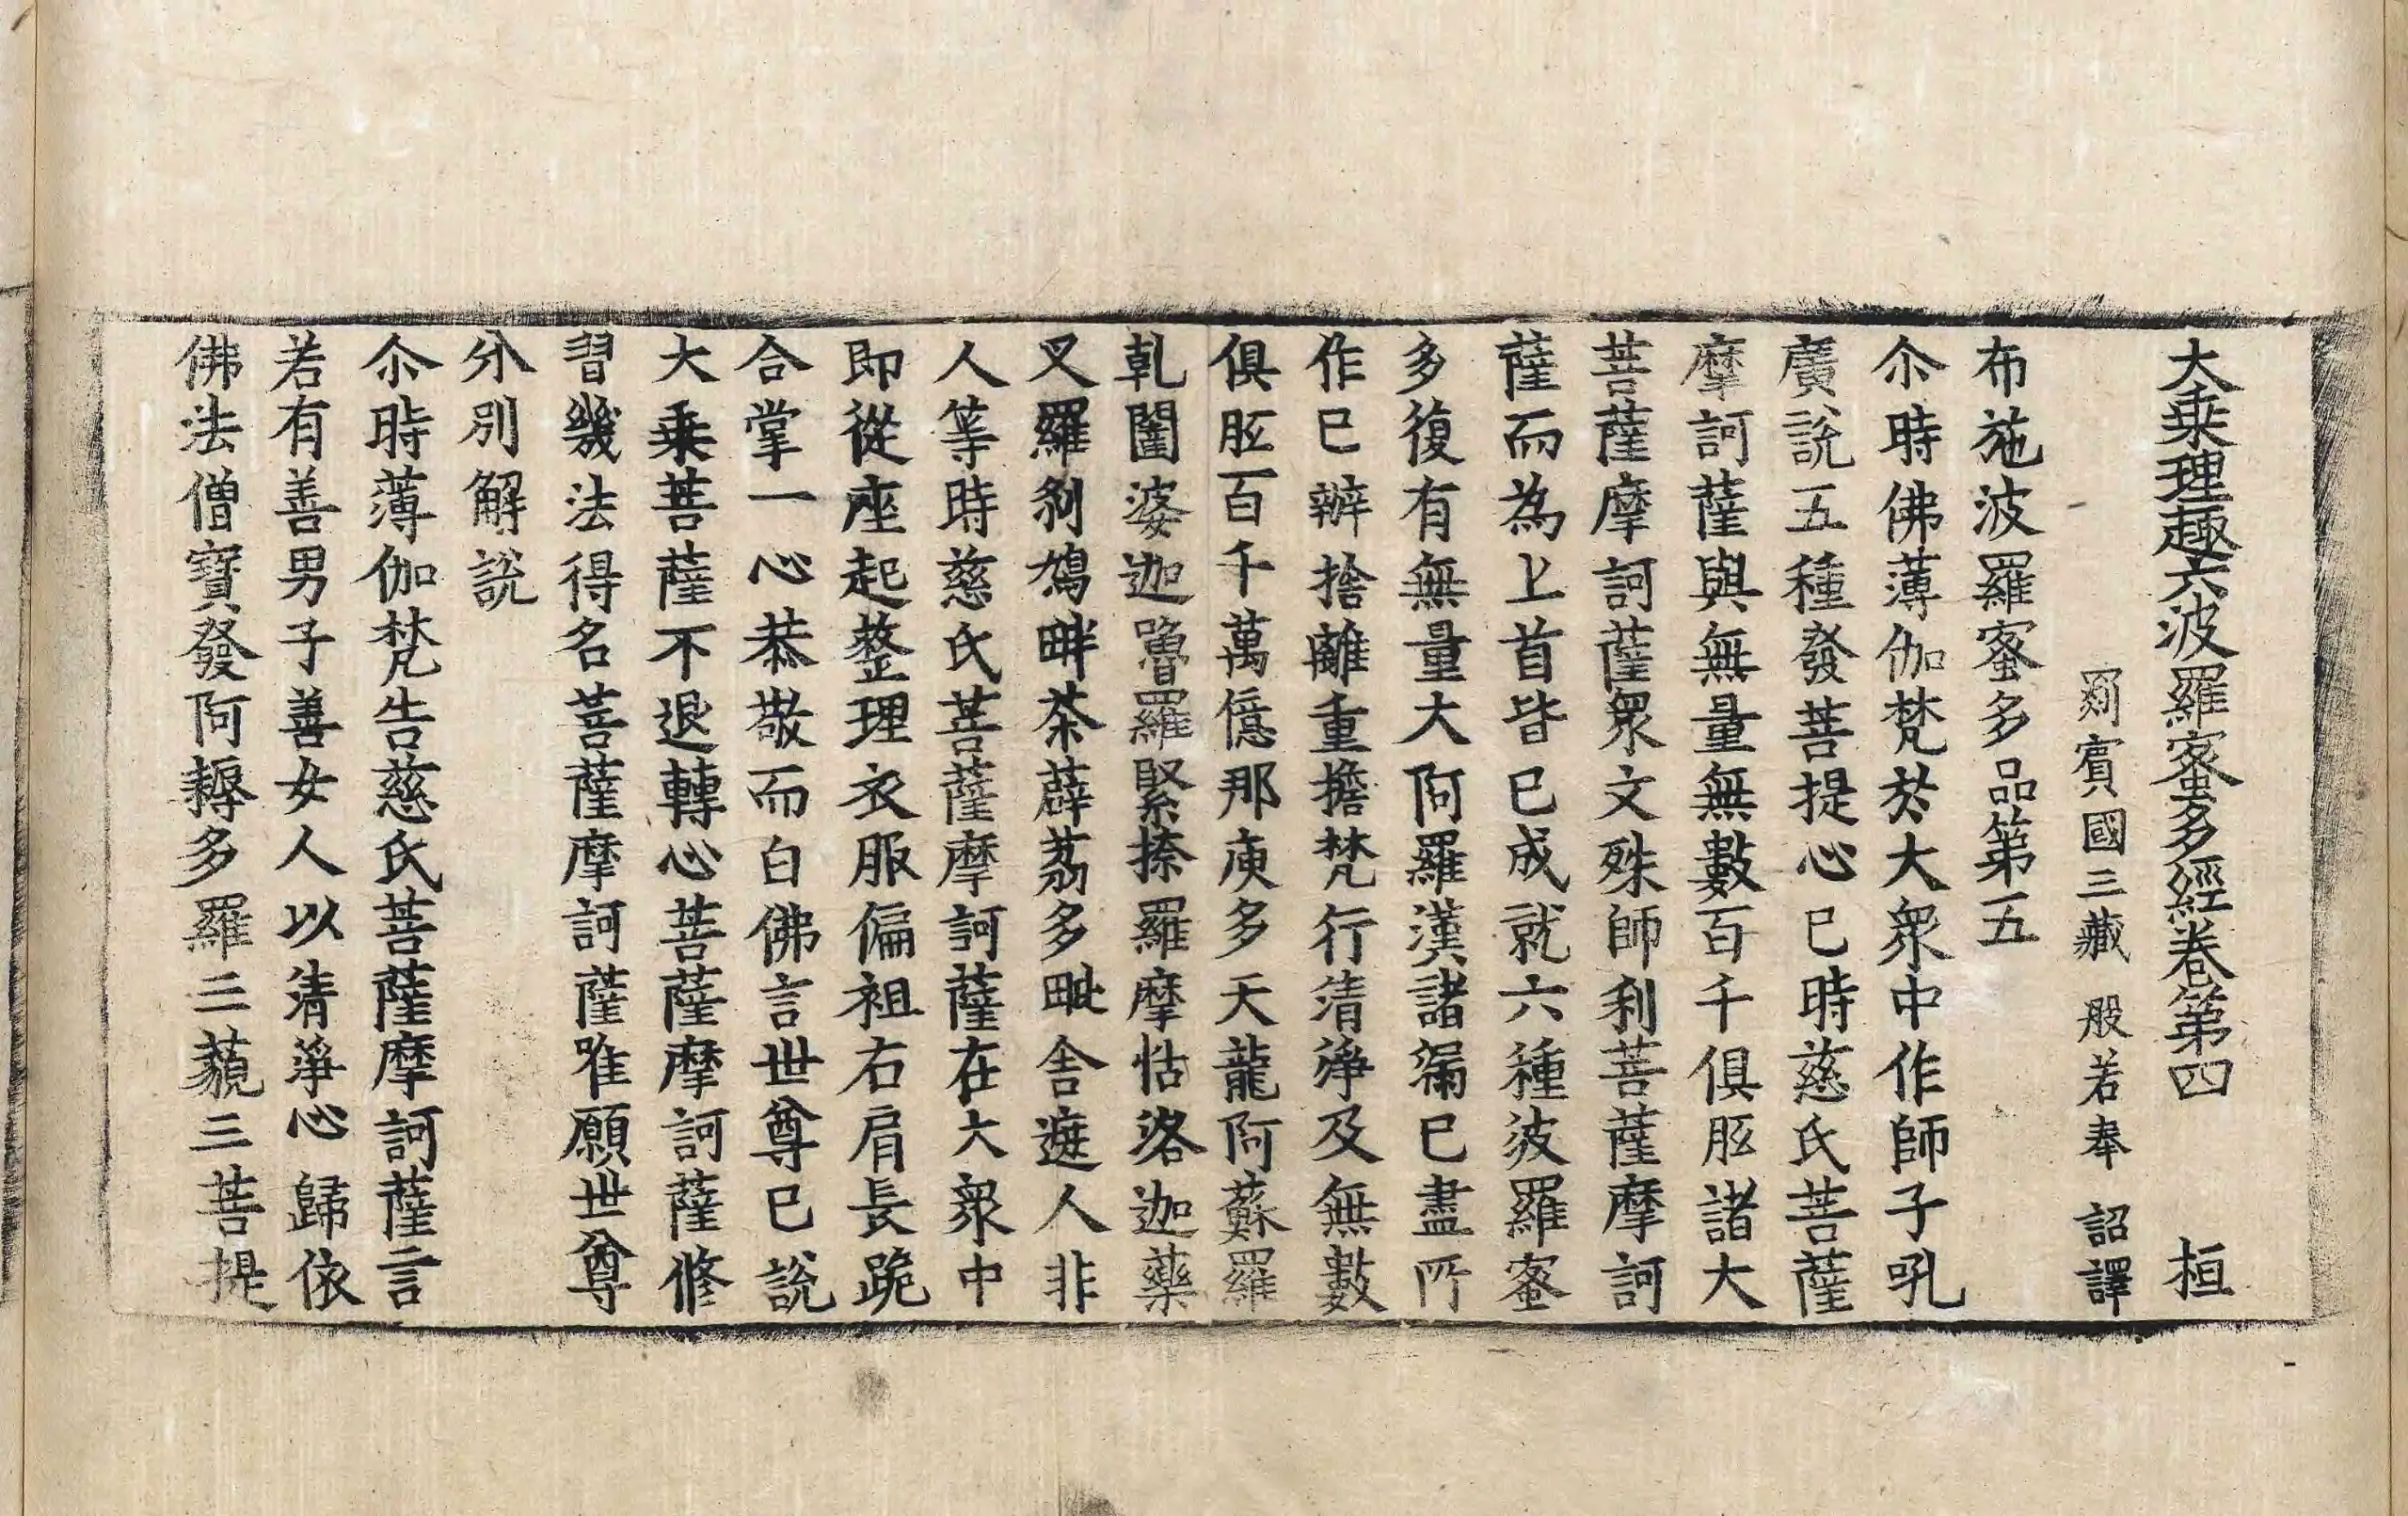 大乗理趣六波羅蜜多經卷第四 桓
罽賓國三藏 般若奉 詔譯
布施波羅蜜多品第五
尒時佛薄伽梵於大衆中作師子吼
廣說五種發菩提心已時慈氏菩薩
摩訶薩與無量無數百千俱胝諸大
菩薩摩訶薩衆文殊師利菩薩摩訶
薩而為上首皆已成就六種波羅蜜
多復有無量大阿羅漢諸漏已盡所
作已辦捨離重擔梵行清淨及無數
俱胝百千萬億那庾多天龍阿蘇羅
乹闥婆迦嚕羅緊捺羅摩怙洛迦藥
叉羅剎鳩畔茶薜荔多毗舍遮人非
人等時慈氏菩薩摩訶薩在大衆中
即從座起整理衣服偏袒右肩長跪
合掌一心恭敬而白佛言世尊已說
大乗菩薩不退轉心菩薩摩訶薩修
習幾法得名菩薩摩訶薩唯願世尊
分別解說
尒時薄伽梵告慈氏菩薩摩訶薩言
若有善男子善女人以清淨心歸依
佛法僧寶發阿耨多羅三藐三菩提